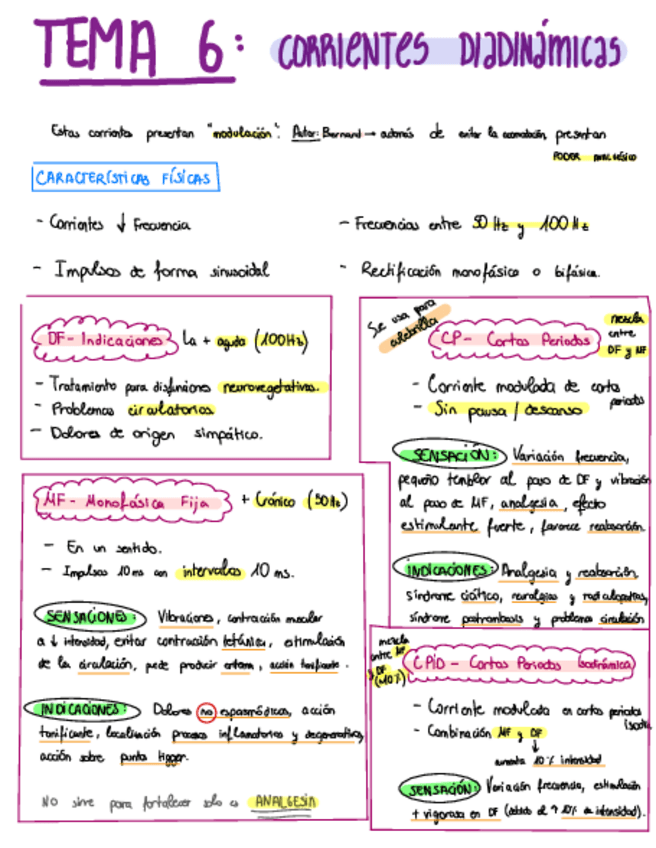 TEMA 6: CORRIENTES DIADINÁMICAS
Estas corrientes presentan "modulación". Autor: Bernard → además de evitar la acomodación, presentan
PODER ANALGÉSICO
CARACTERÍSTICAS FÍSICAS
- Corrientes ↓ Frecuencia
- Frecuencias entre 50 Hz y 100 Hz
- Impulsos de forma sinusoidal
- Rectificación monofásica o bifásica.
DF - Indicaciones La + aguda (100Hz)
- Tratamiento para disfunciones neurovegetativas.
- Problemas circulatorios
- Dolores de origen simpático.
MF - Monofásica Fija + Crónico (50Hz)
- En un sentido.
- Impulsos 10 ms con intervalos 10 ms.
SENSACIONES: Vibraciones, contracción muscular
a ↓ intensidad, evitar contracción tetánica, estimulación
de la circulación, puede producir eritema, acción tonificante.
INDICACIONES: Dolores no espasmódicos, acción
tonificante, localización procesos inflamatorios y degenerativos,
acción sobre punto trigger.
NO sirve para fortalecer solo es ANALGESIA
Se usa para
culebrilla
CP - Cortos Periodos
mezcla
entre
DF y MF
- Corriente modulada de cortos
periodos
- Sin pausa / descanso
SENSACIÓN: Variación frecuencia,
pequeño temblor al paso de DF y vibración
al paso de MF, analgesia, efecto
estimulante fuerte, favorece reabsorción.
INDICACIONES: Analgesia y reabsorción,
síndrome ciático, neuralgias y radiculopatías,
síndrome postrombosis y problemas circulación
mezcla
entre MF
y DF
(↑10%)
CPID - Cortos Periodos Isodinámica
- Corriente modulada en cortos periodos
- Combinación MF y DF
↓
aumenta 10% intensidad
SENSACIÓN: Variación frecuencia, estimulación
+ vigorosa en DF (debido al ↑ 10% de intensidad).